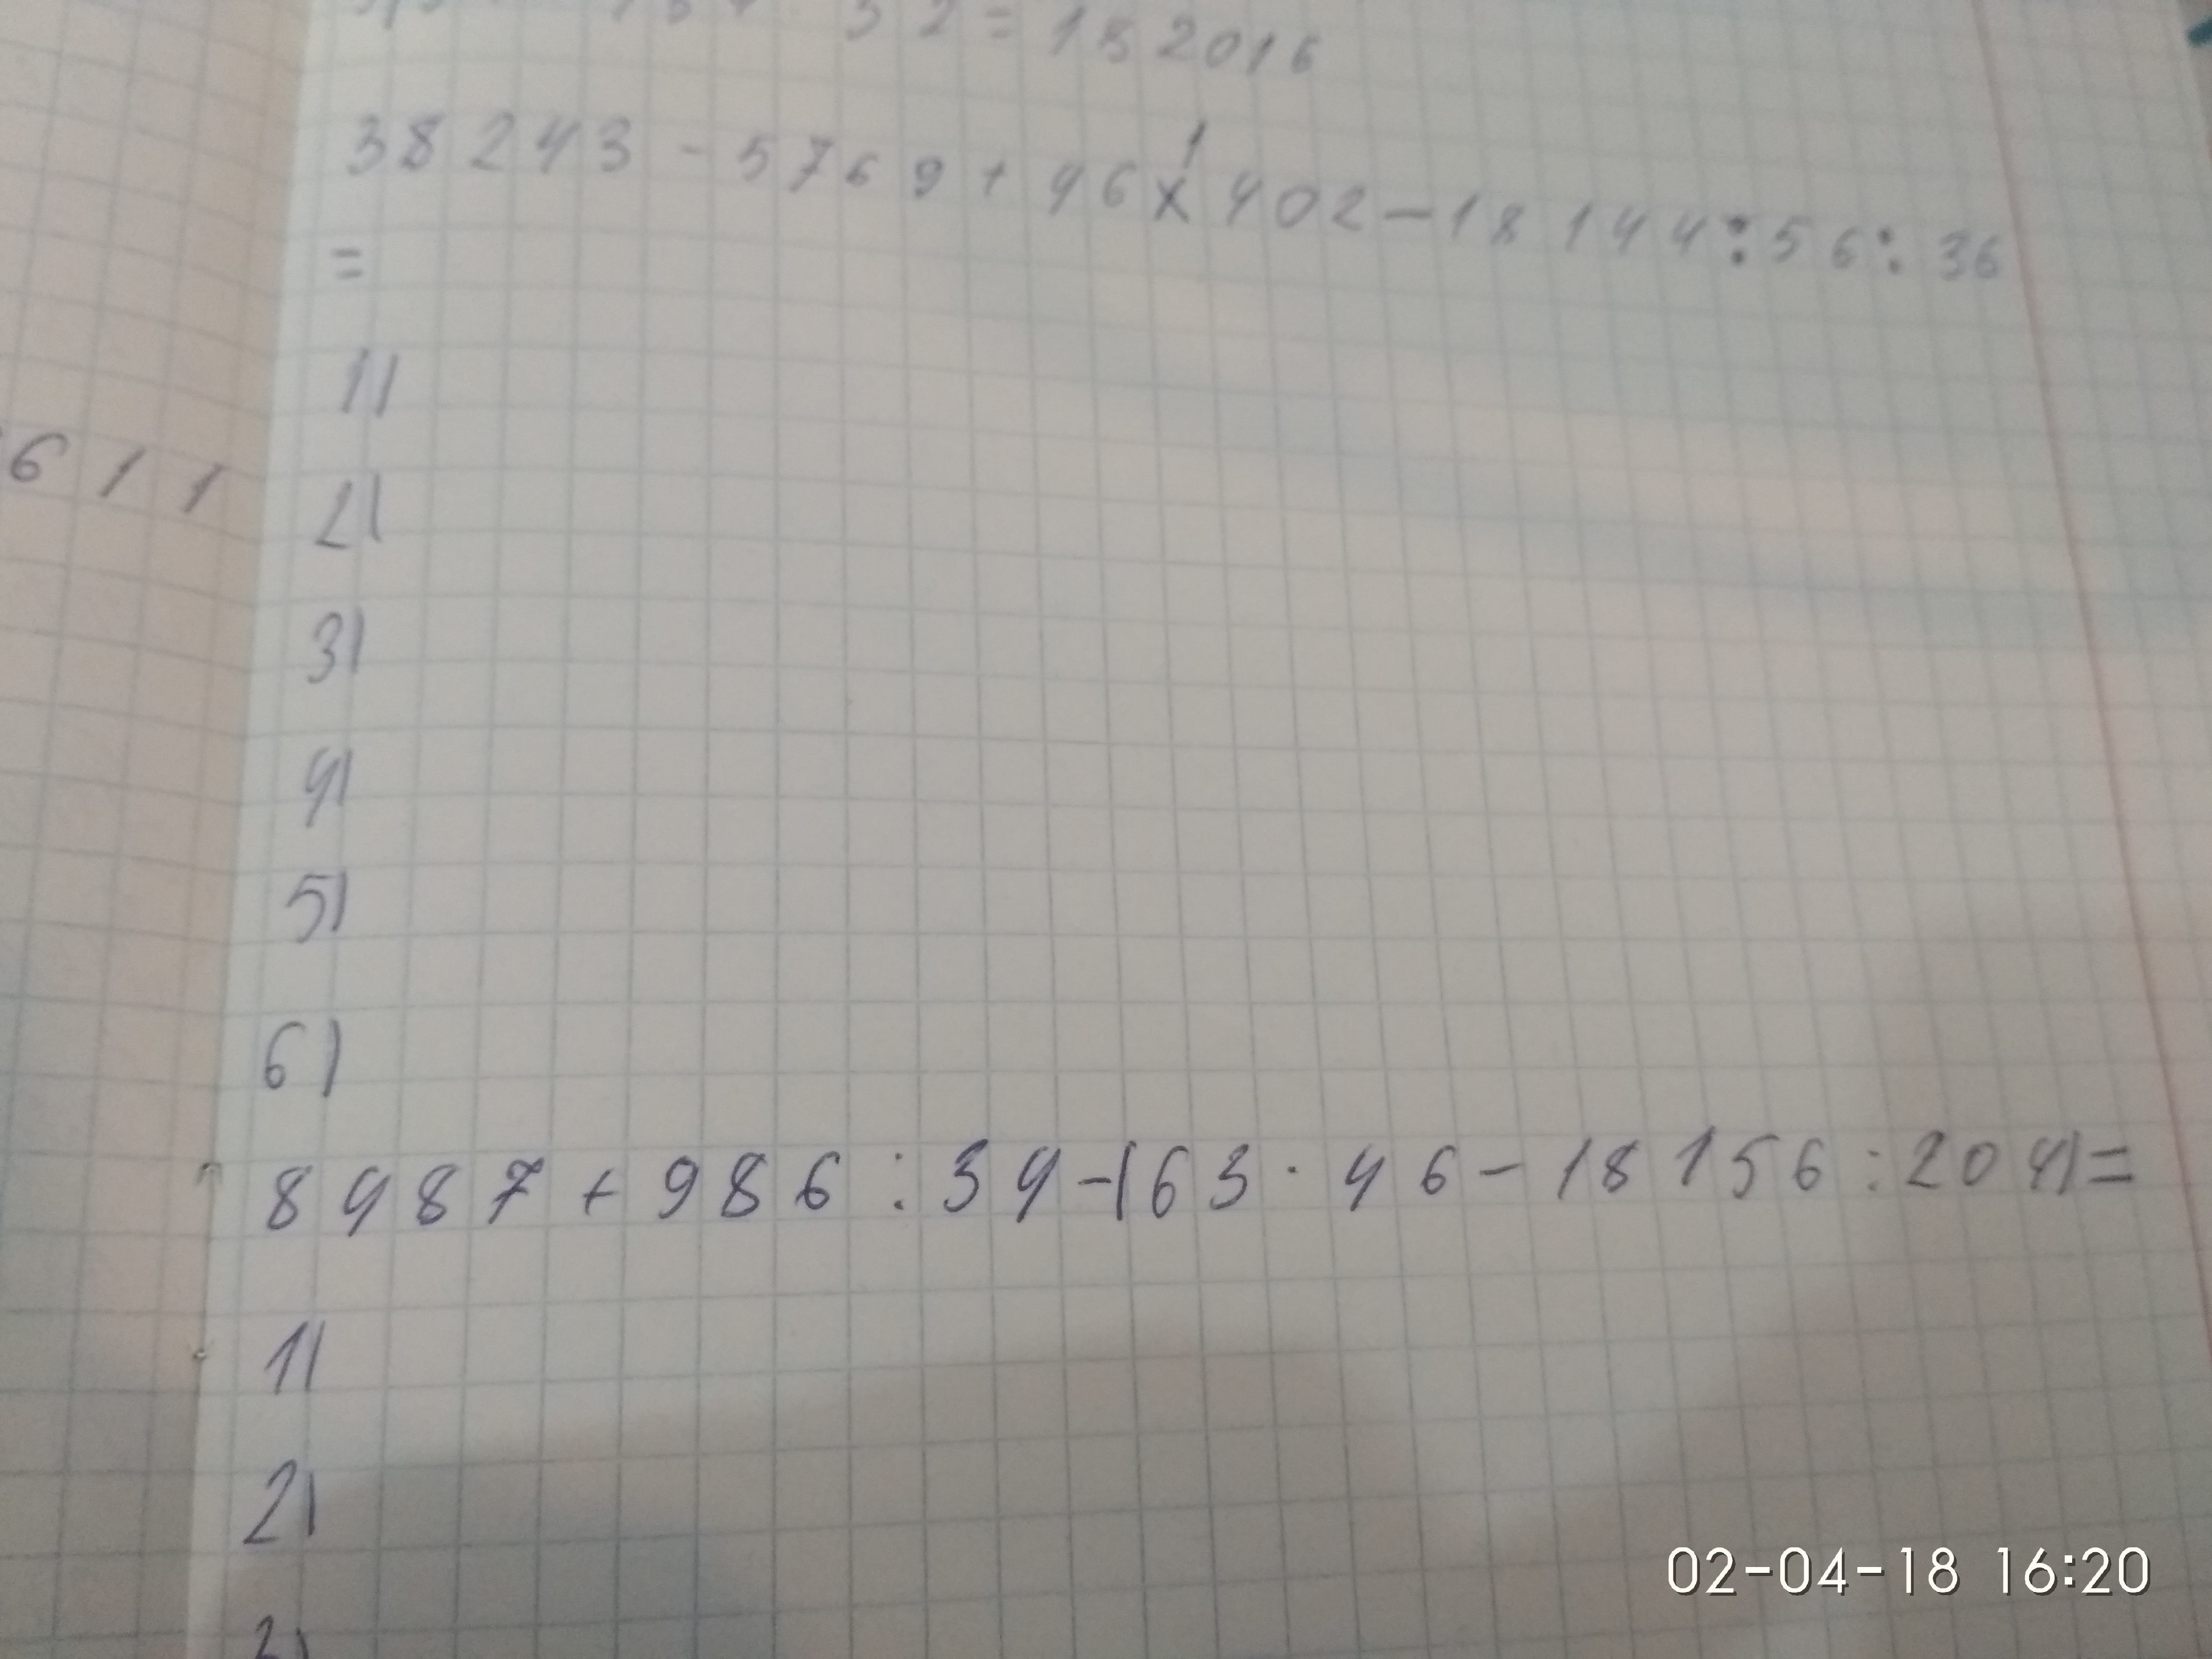 32=132016
38243-5769+46x402-18144:56:36
1
=
1)
611
2)
3)
4)
5)
6)
8487+986:34-(63·46-18156:204)=
1)
2)
3)
02-04-18 16:20